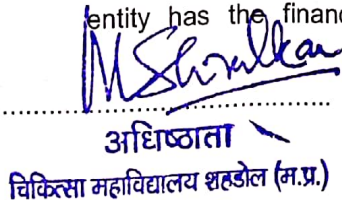 entity has the financ
अधिष्ठाता
चिकित्सा महाविद्यालय शहडोल (म.प्र.)